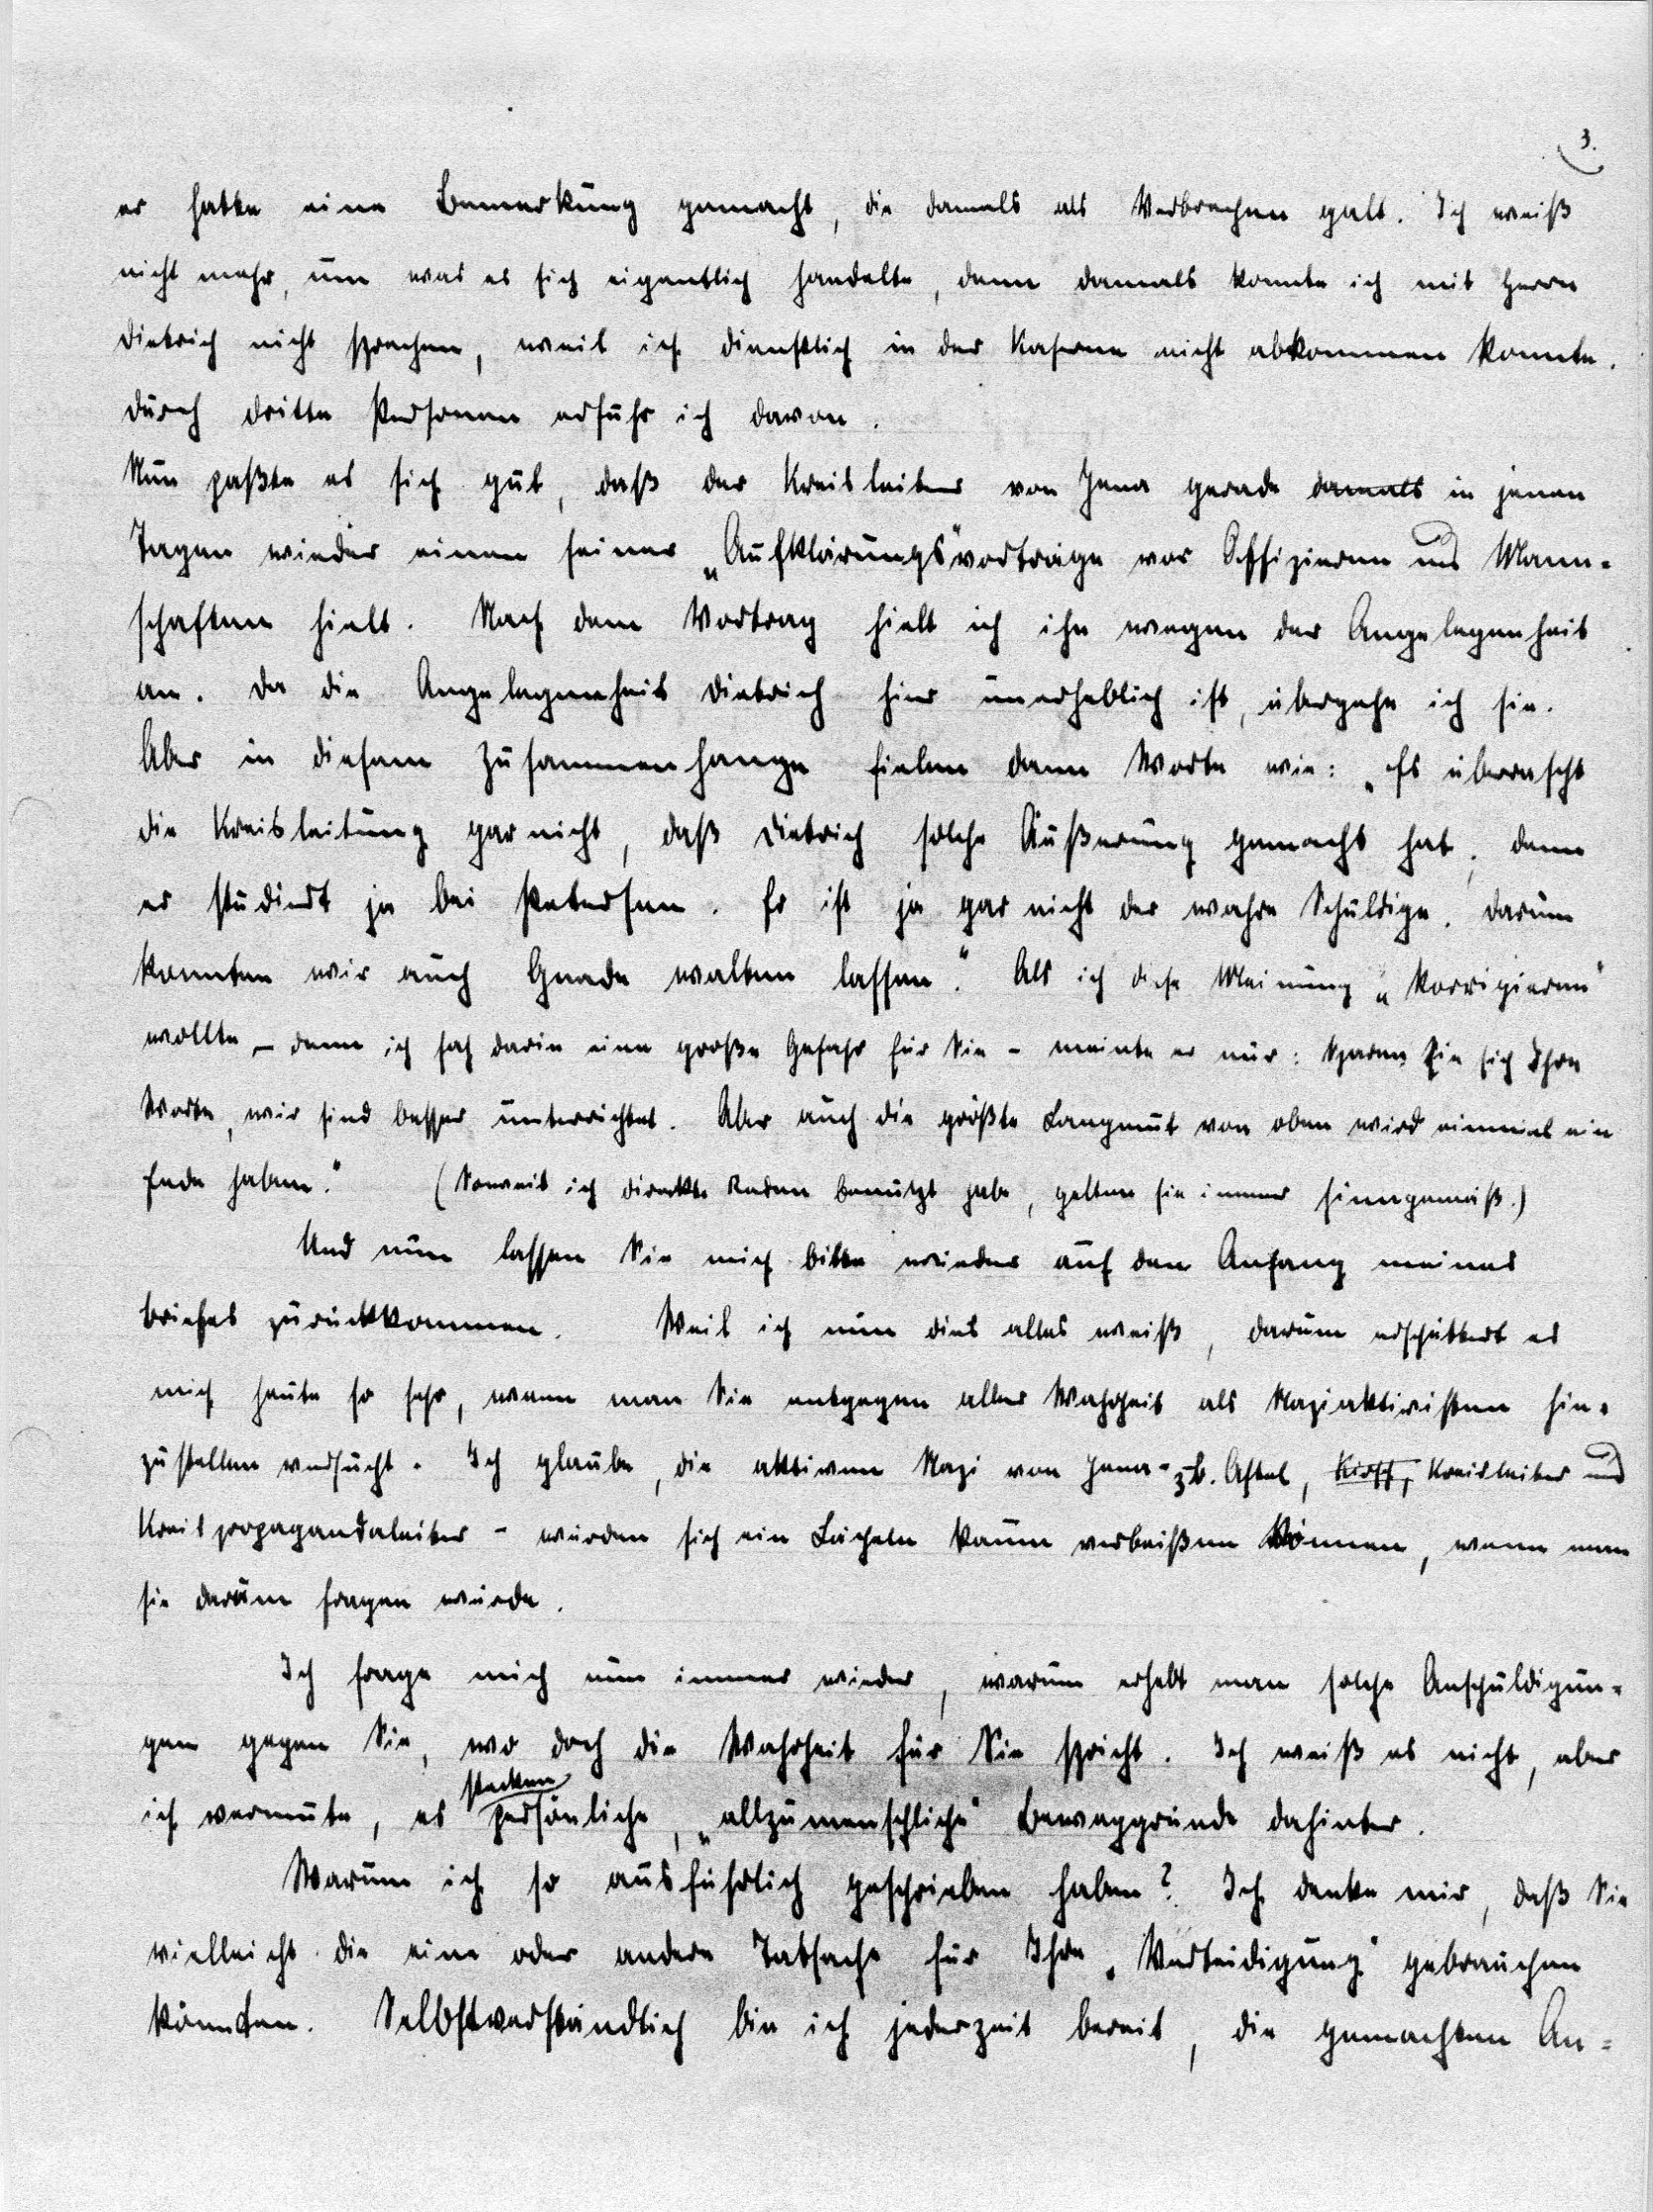 3.
er hatte eine Bemerkung gemacht, die damals als Verbrechen galt. Ich weiß
nicht mehr, um was es sich eigentlich handelte, denn damals konnte ich mit Herrn
Dietrich nicht sprechen, weil ich dienstlich in der Kaserne nicht abkommen konnte.
Durch dritte Personen erfuhr ich davon.
Nun paßte es sich gut, daß der Kreisleiter von Jena gerade damals in jenen
Tagen wieder einen seiner „Aufklärungs"vorträge vor Offizieren und Mann-
schaften hielt. Nach dem Vortrag hielt ich ihn wegen der Angelegenheit
an. Da die Angelegenheit Dietrich hier unerheblich ist, übergehe ich sie.
Aber in diesem Zusammenhange fielen dann Worte wie: „Es überrascht
die Kreisleitung gar nicht, daß Dietrich solche Äußerung gemacht hat, denn
er studiert ja bei Petersen. Er ist ja gar nicht der wahre Schuldige. Darum
konnten wir auch Gnade walten lassen." Als ich diese Meinung „korrigieren"
wollte – denn ich sah darin eine große Gefahr für Sie – meinte er nur: Sparen Sie sich Ihre
Worte, wir sind besser unterrichtet. Aber auch die größte Langmut von oben wird einmal ein
Ende haben." (Soweit ich direkte Reden benutzt habe, gelten sie immer sinngemäß.)
Und nun lassen Sie mich bitte wieder auf den Anfang meines
Briefes zurückkommen. Weil ich nun dies alles weiß, darum erschüttert es
mich heute so sehr, wenn man Sie entgegen aller Wahrheit als Naziaktivisten hin-
zustellen versucht. Ich glaube, die aktiven Nazi von Jena – z.B. Astel, Kreisleiter und
Kreispropagandaleiter – würden sich ein Lächeln kaum verbeißen können, wenn man
sie darum fragen würde.
Ich frage mich nun immer wieder, warum erhebt man solche Anschuldigun-
gen gegen Sie, wo doch die Wahrheit für Sie spricht. Ich weiß es nicht, aber
ich vermute, es stecken persönliche, „allzumenschliche" Beweggründe dahinter.
Warum ich so ausführlich geschrieben haben? Ich denke mir, daß Sie
vielleicht die eine oder andere Tatsache für Ihre „Verteidigung" gebrauchen
könnten. Selbstverständlich bin ich jederzeit bereit, die gemachten An-